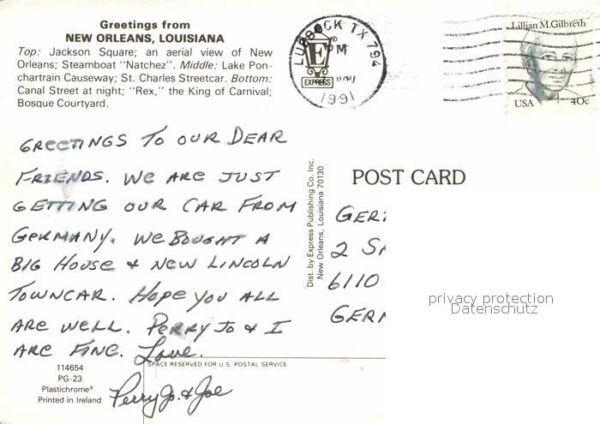 Greetings from
NEW ORLEANS, LOUISIANA
Top: Jackson Square; an aerial view of New
Orleans; Steamboat "Natchez". Middle: Lake Pon-
chartrain Causeway; St. Charles Streetcar. Bottom:
Canal Street at night; "Rex," the King of Carnival;
Bosque Courtyard.
LUBBOCK TX 794
PM
1991
E
EXPRESS
Lillian M. Gilbreth
USA 40c
GREETINGS TO OUR DEAR
FRIENDS. WE ARE JUST
GETTING OUR CAR FROM
GERMANY. WE BOUGHT A
BIG HOUSE & NEW LINCOLN
TOWNCAR. HOPE YOU ALL
ARE WELL. PERRY JO & I
ARE FINE. Love.
Perry Jo. & Joe
Dist. by Express Publishing Co. Inc.
New Orleans, Louisiana 70130
POST CARD
GER
2 S
6110
GERM
privacy protection
Datenschutz
SPACE RESERVED FOR U.S. POSTAL SERVICE
114654
PG-23
Plastichrome®
Printed in Ireland